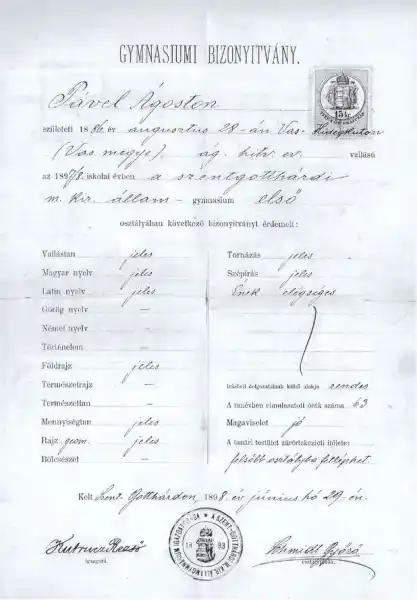 GYMNASIUMI BIZONYITVÁNY.
15 kr.
Pável Ágoston
született 1886 év augusztus 28-án Vas-Hidegkúton
(Vas megye), ág. hitv. ev. vallású
az 1897/8 iskolai évben a szentgotthárdi
m. kir. állam- gymnasium első
osztályában következő bizonyitványt érdemelt:
Vallástan jeles
Magyar nyelv jeles
Latin nyelv jeles
Görög nyelv
Német nyelv
Történelem
Földrajz jeles
Természetrajz —
Természettan —
Mennyiségtan jeles
Rajz. geom. jeles
Bölcsészet —
Tornázás jeles
Szépirás jeles
Ének elégséges
Irásbeli dolgozatainak külső alakja rendes
A tanévben elmulasztott órák száma 63
Magaviselet jó
A tanári testület zárértekezleti itélete:
felsőbb osztályba felléphet.
Kelt Szent-Gotthárdon, 1898. év junius hó 29-én.
18 93
Schmidt Győző
igazgató.